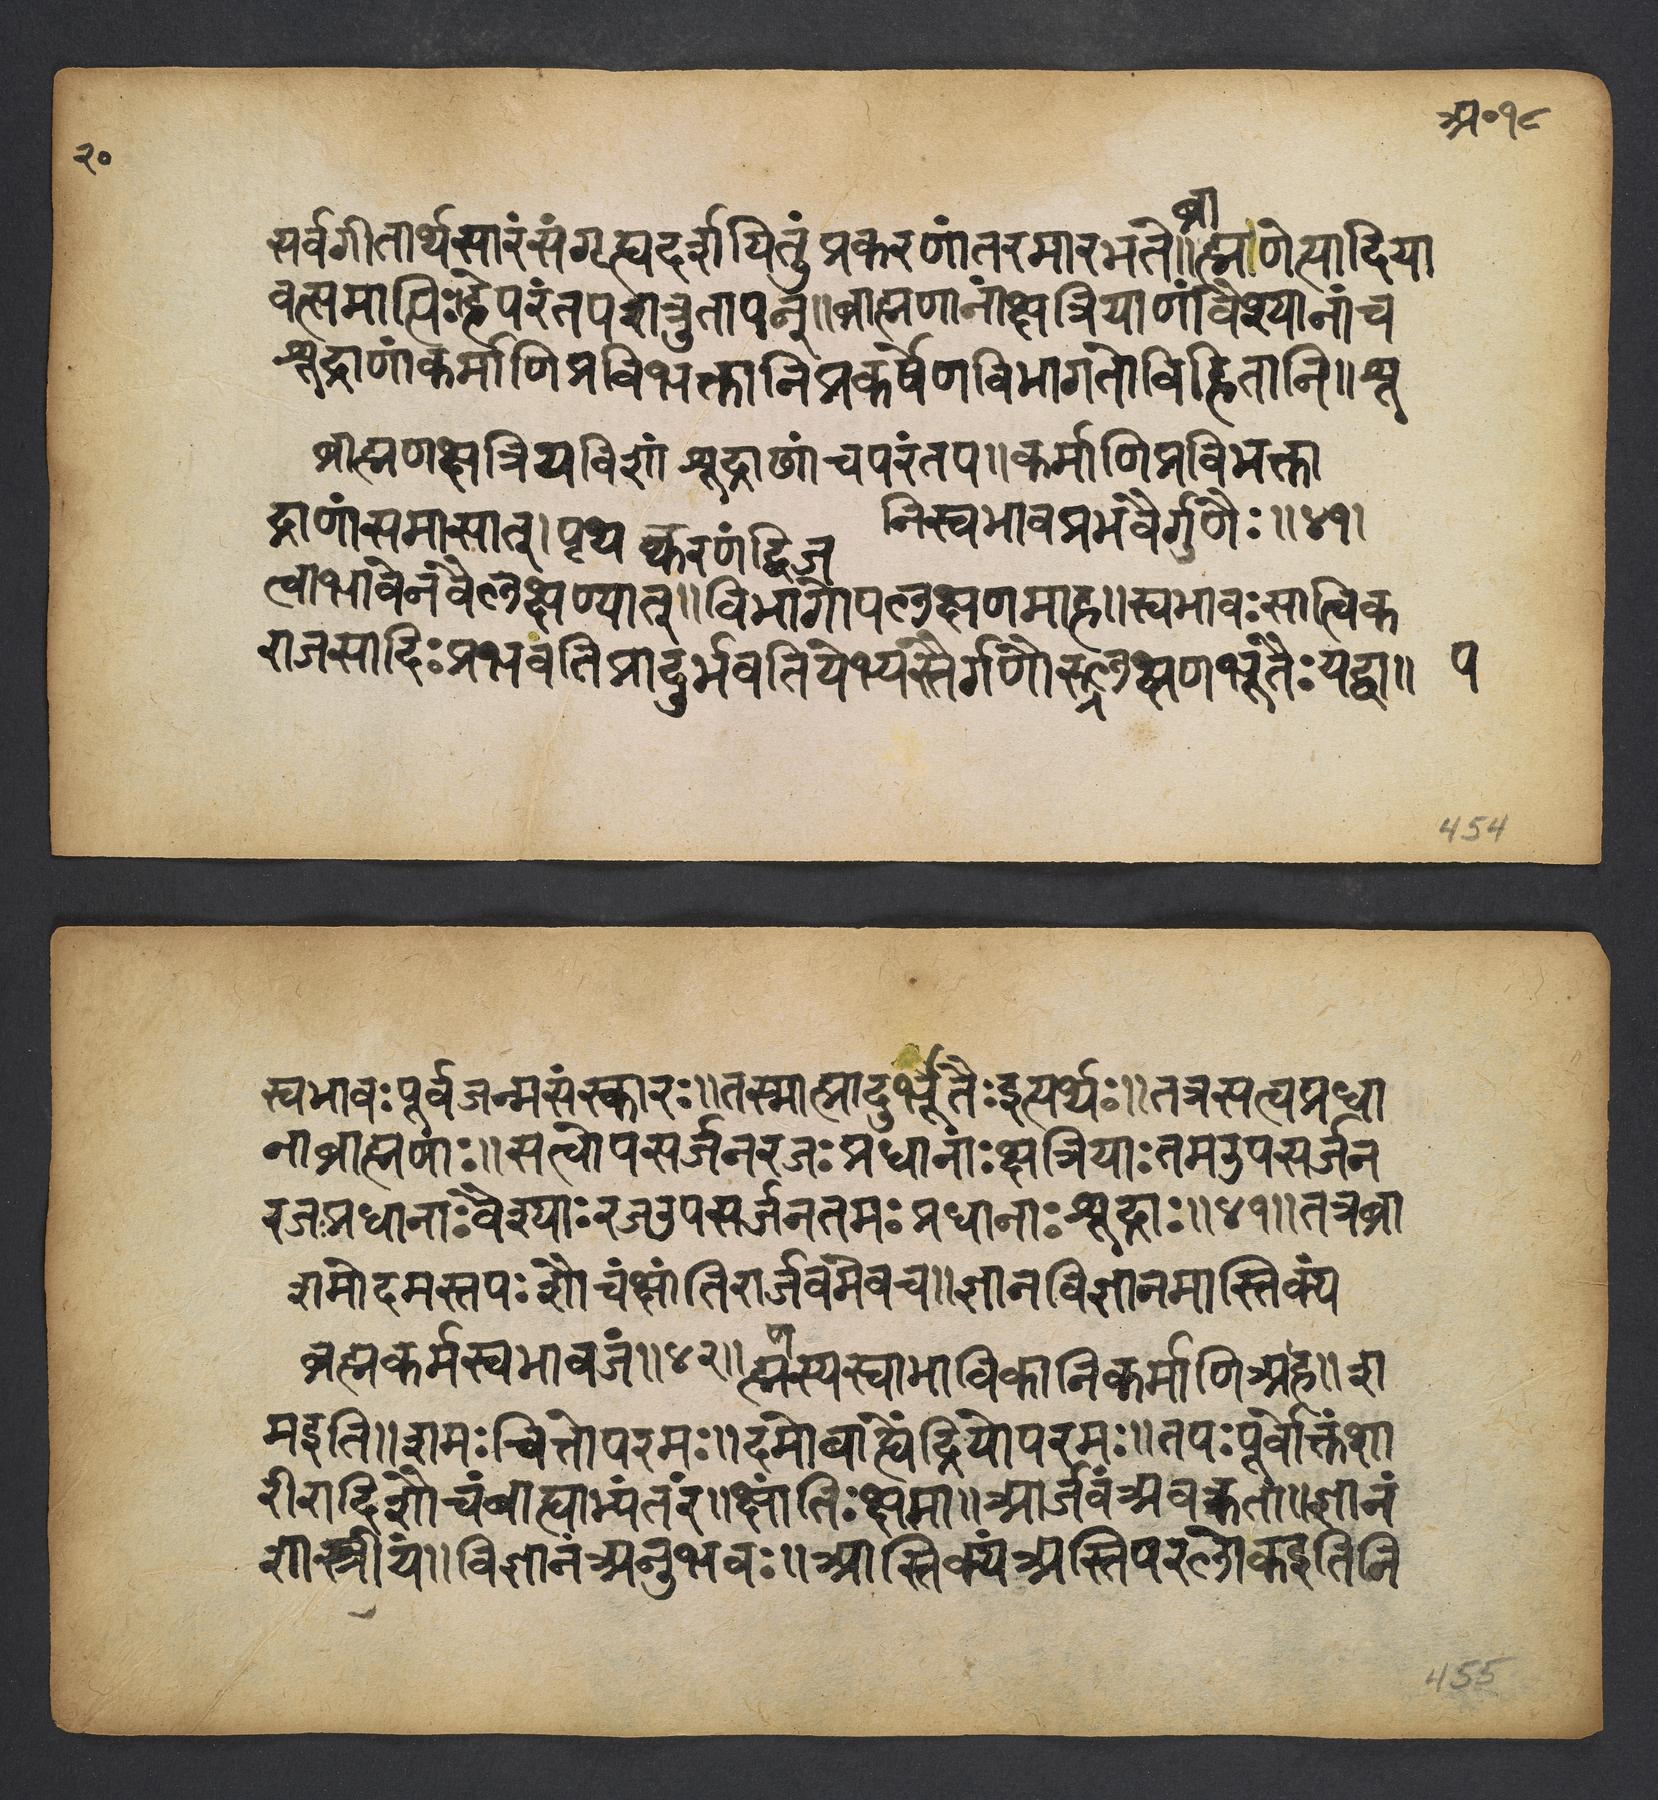 अ॰१८
२०
सर्वगीतार्थसारंसंगृह्यदर्शयितुंप्रकरणांतरमारभते॥ब्राह्मणेत्यादिया
वत्समाप्तिःहेपरंतपशत्रुतापन्॥ब्राह्मणानांक्षत्रियाणांवैश्यानांच
शूद्राणांकर्माणिप्रविभक्तानिप्रकर्षेणविभागतोविहितानि॥शू
ब्राह्मणक्षत्रियविशां शूद्राणांचपरंतप॥कर्माणिप्रविभक्ता
निस्वभावप्रभवैर्गुणैः॥४१।
द्राणांसमासात्।पृथक्करणंद्विज
त्वाभावेनवैलक्षण्यात्॥विभागोपलक्षणमाह॥स्वभावःसात्विक
राजसादिःप्रभवतिप्रादुर्भवतियेभ्यस्तैर्गणौरुपलक्षणभूतैःयद्वा॥ प
454
स्वभावःपूर्वजन्मसंस्कारः॥तस्मात्प्रादुर्भूतैःइत्यर्थः॥तत्रसत्वप्रधा
नाब्राह्मणाः॥सत्वोपसर्जनरजःप्रधानाःक्षत्रियाःतमउपसर्जन
रजःप्रधानाःवैश्याःरजउपसर्जनतमःप्रधानाःशूद्राः॥४१॥तत्रब्रा
शमोदमस्तपःशौचंक्षांतिरार्जवमेवच॥ज्ञानविज्ञानमास्तिक्यं
ब्रह्मकर्मस्वभावजं॥४२॥
ह्मणस्यस्वाभाविकानिकर्माणिअह॥श
मइति॥शमःचित्तोपरमः॥दमोबाह्येंद्रियोपरमः॥तपःपूर्वोक्तंशा
रीरादिशौचंबाह्याभ्यंतरं॥क्षांतिःक्षमा॥आर्जवंअवक्रता॥ज्ञानं
शास्त्रीयं॥विज्ञानंअनुभवः॥आस्तिक्यंअस्तिपरलोकइतिनि
455